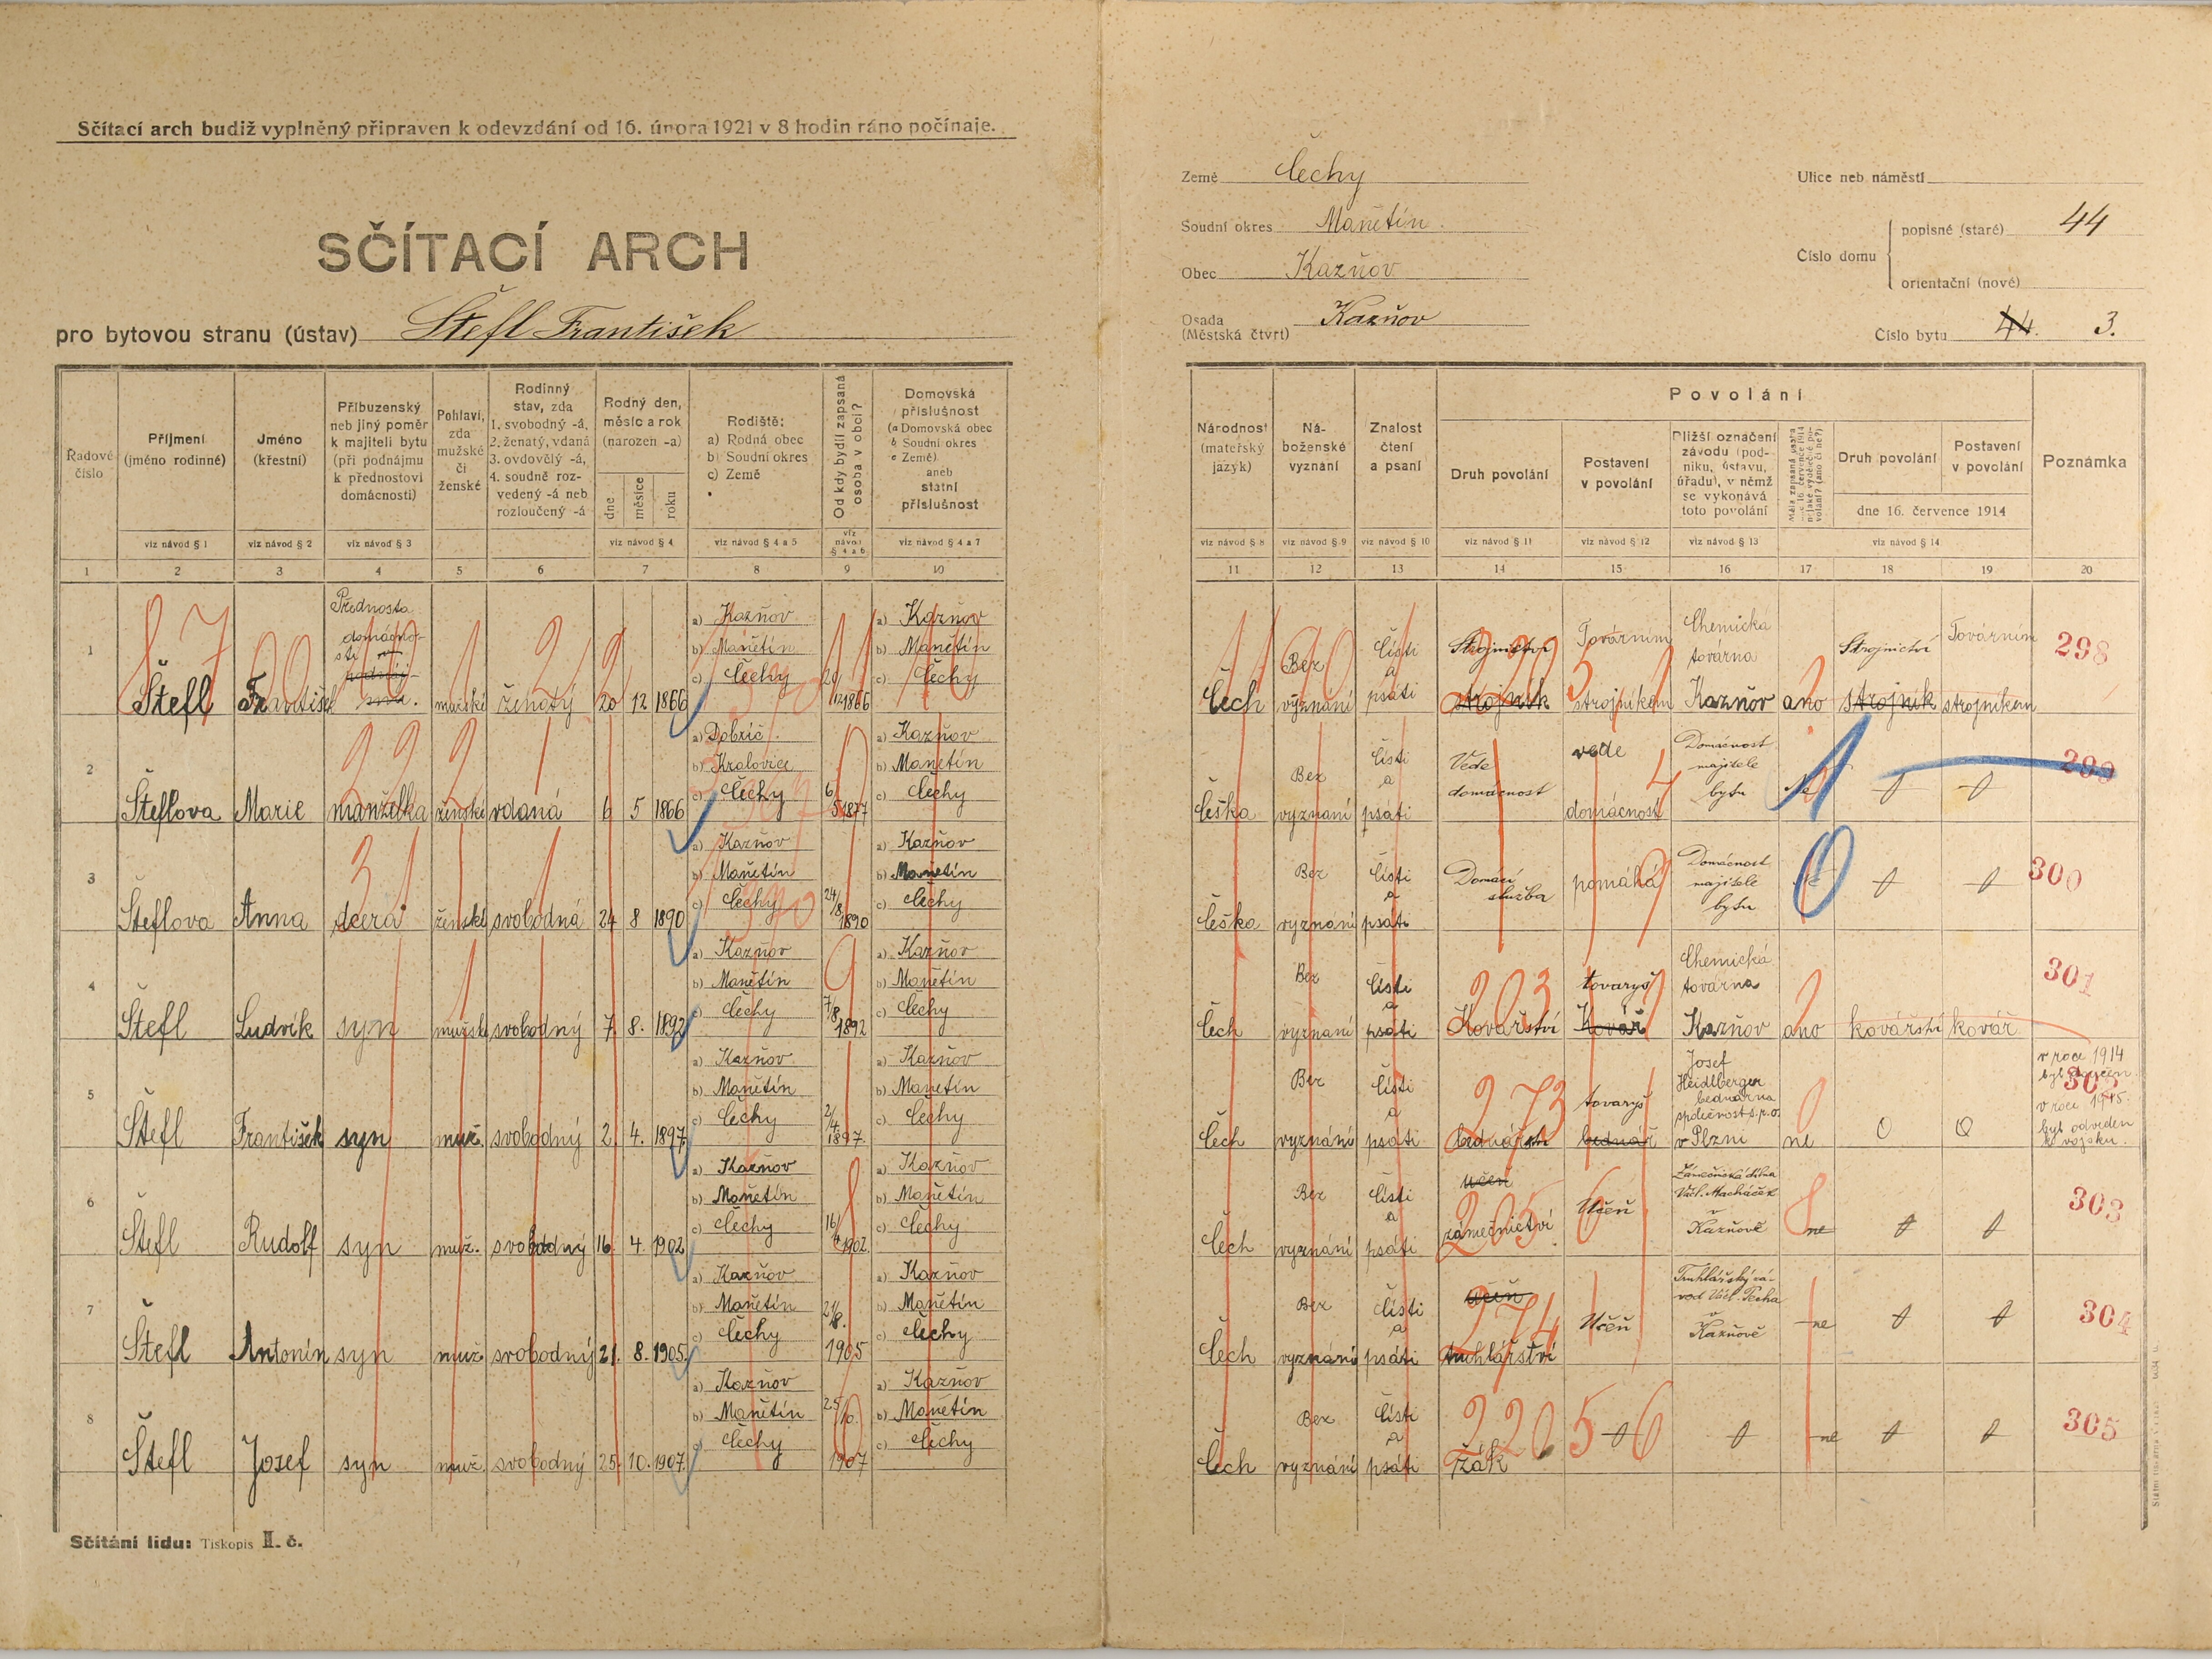 Sčítací arch budiž vyplněný připraven k odevzdání od 16. února 1921 v 8 hodin ráno počínaje.
SČÍTACÍ ARCH
pro bytovou stranu (ústav) Štefl František
Země Čechy
Soudní okres Manětín.
Obec Kazňov
Osada (Městská čtvrt) Kazňov
Ulice neb náměstí
Číslo domu
popisné (staré) 44
orientační (nové)
Číslo bytu 44. 3.
Řadové číslo
Příjmení (jméno rodinné)
Jméno (křestní)
Příbuzenský neb jiný poměr k majiteli bytu (při podnájmu k přednostovi domácnosti)
Pohlaví, zda mužské či ženské
Rodinný stav, zda 1. svobodný -á, 2. ženatý, vdaná 3. ovdovělý -á, 4. soudně rozvedený -á neb rozloučený -á
Rodný den, měsíc a rok (narozen -a)
dne měsíce roku
Rodiště: a) Rodná obec b) Soudní okres c) Země
Od kdy bydlí zapsaná osoba v obci?
Domovská příslušnost (a Domovská obec b Soudní okres c Země) aneb státní příslušnost
Národnost (mateřský jazyk)
Náboženské vyznání
Znalost čtení a psaní
Povolání
Druh povolání
Postavení v povolání
Bližší označení závodu (podniku, ústavu, úřadu), v němž se vykonává toto povolání
Druh povolání
Postavení v povolání
dne 16. července 1914
Poznámka
viz návod § 1 viz návod § 2 viz návod § 3 viz návod § 4 viz návod § 4 a 5 viz návod § 4 a 6 viz návod § 4 a 7
viz návod § 8 viz návod § 9 viz návod § 10 viz návod § 11 viz návod § 12 viz návod § 13 viz návod § 14
1 2 3 4 5 6 7 8 9 10
11 12 13 14 15 16 17 18 19 20
1 Štefl František Přednosta domácnosti mužské ženatý 20 12 1866 a) Kazňov b) Manětín c) Čechy 20/12 1866 a) Kazňov b) Manětín c) Čechy
Čech Bez vyznání Čísti a psáti Strojnictví strojník Továrním strojníkem Chemická továrna Kazňov ano Strojnictví strojník Továrním strojníkem 298
2 Šteflova Marie manželka ženské vdaná 6 5 1866 a) Dobříč. b) Kralovice c) Čechy 6/5 1877 a) Kazňov b) Manětín c) Čechy
Češka Bez vyznaní čísti a psáti Vede domácnost vede domácnost Domácnost majitele bytu 299
3 Šteflova Anna dcera ženské svobodná 24 8 1890 a) Kazňov b) Manětín c) Čechy 24/8 1890 a) Kazňov b) Manětín c) Čechy
Češka Bez vyznaní čísti a psáti Domácí služba pomáhá Domácnost majitele bytu 300
4 Štefl Ludvík syn mužské svobodný 7. 8. 1892 a) Kazňov b) Manětín c) Čechy 7/8 1892 a) Kazňov b) Manětín c) Čechy
Čech Bez vyznaní čísti a psáti 203 Kovářství tovaryš Kovář Chemická továrna Kazňov ano kovářství kovář 301
5 Štefl František syn muž. svobodný 2. 4. 1897 a) Kazňov b) Manětín c) Čechy 2/4. 1897. a) Kazňov b) Manětín c) Čechy
Čech Bez vyznání čísti a psáti 273 bednářství tovaryš bednář Josef Heidlberger bednárna společnost s. p. o. v Plzni ne 0 0 302 v roce 1914 byl v roce 1915. byl odveden k vojsku.
6 Štefl Rudolf syn muž. svobodný 16. 4. 1902 a) Kazňov b) Manětín c) Čechy 16/4 1902. a) Kazňov b) Manětín c) Čechy
Čech Bez vyznání čísti a psáti učeň 205 zámečnictví Učeň 6 Zámečnická dílna Václ. Macháček v Kazňově ne 303
7 Štefl Antonín syn muž svobodný 21. 8. 1905 a) Kazňov b) Manětín c) Čechy 21/8. 1905 a) Kazňov b) Manětín c) Čechy
Čech Bez vyznání čísti a psáti učeň 274 truhlářství Učeň Truhlářský závod Václ. Pecha v Kazňově ne 304
8 Štefl Josef syn muž. svobodný 25. 10. 1907. a) Kazňov b) Manětín c) Čechy 25/10. 1907 a) Kazňov b) Manětín c) Čechy
Čech Bez vyznání čísti a psáti 220 žák 5 6 ne 305
Sčítání lidu: Tiskopis II. č.